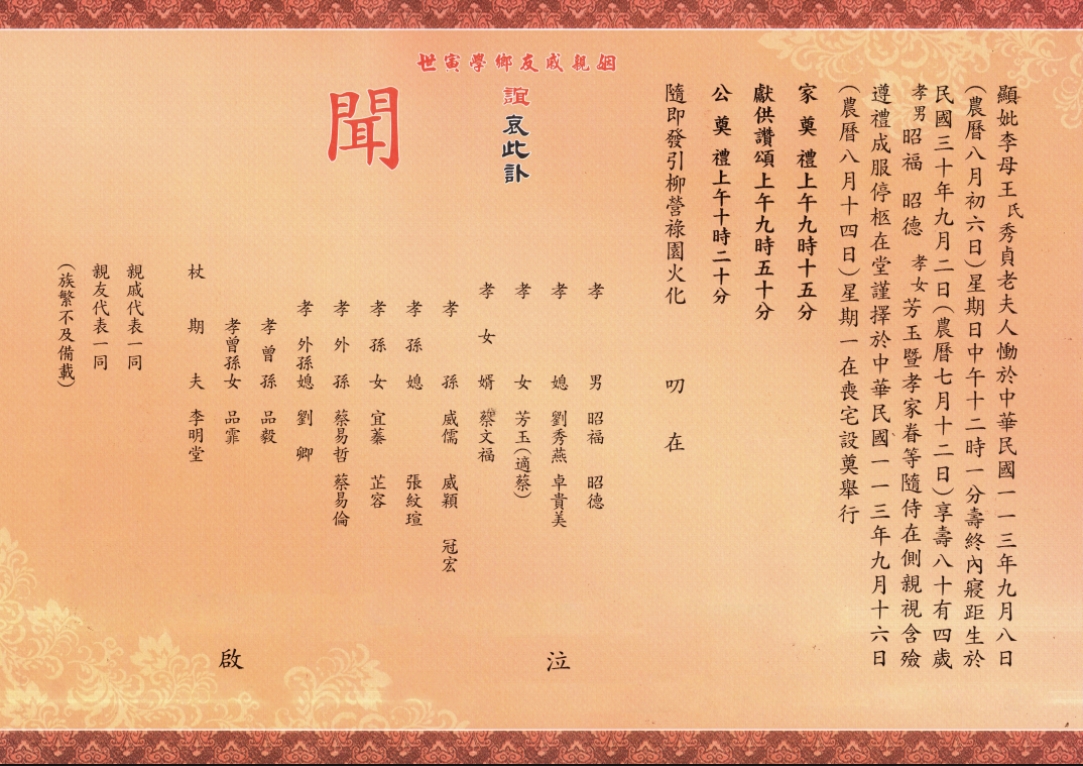 顯妣李母王氏秀貞老夫人慟於中華民國一一三年九月八日
(農曆八月初六日)星期日中午十二時一分壽終內寢距生於
民國三十年九月二日(農曆七月十二日)享壽八十有四歲
孝男昭福 昭德 孝女芳玉暨孝家眷等隨侍在側親視含殮
遵禮成服停柩在堂謹擇於中華民國一一三年九月十六日
(農曆八月十四日)星期一在喪宅設奠舉行
家奠禮上午九時十五分
獻供讚頌上午九時五十分
公奠禮上午十時二十分
隨即發引柳營祿園火化 叨在
姻親戚友鄉學寅世
誼哀此訃
聞
孝男 昭福 昭德
孝媳 劉秀燕 卓貴美
孝女 芳玉(適蔡)
孝女婿 蔡文福
孝孫 威儒 威穎 冠宏
孝孫媳 張紋瑄
孝孫女 宜蓁 芷容
孝外孫 蔡易哲 蔡易倫
孝外孫媳 劉卿
孝曾孫 品毅
孝曾孫女 品霏
杖期夫 李明堂
泣
啟
親戚代表一同
親友代表一同
(族繁不及備載)